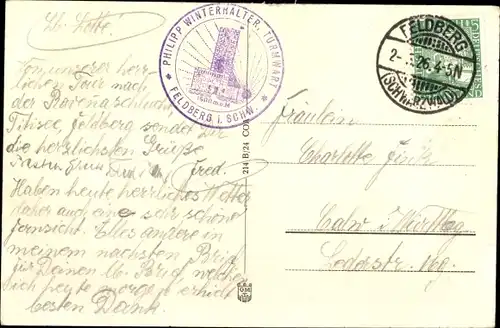 Lb. Lotte!
Von unserer herr-
lichen Tour nach
der Ravennaschlucht
Titisee, Feldberg sendet Dir
die herzlichsten Grüße
Fred.
Haben heute herrliches Wetter
daher auch eine sehr schöne
Fernsicht. Alles andere in
meinem nächsten Brief
für Deinen lb. Brief welchen
ich heute morgen erhielt
besten Dank.
PHILIPP WINTERHALTER, TURMWART
FELDBERG I. SCHW.
214 B/24
FELDBERG
(SCHWARZWALD)
Fräulein
Charlotte
Calw Württbg
Lederstr.